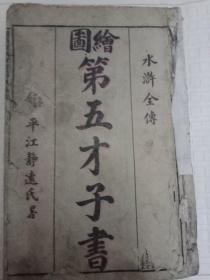 水滸全傳
繪圖
第五才子書
平江靜遠氏署